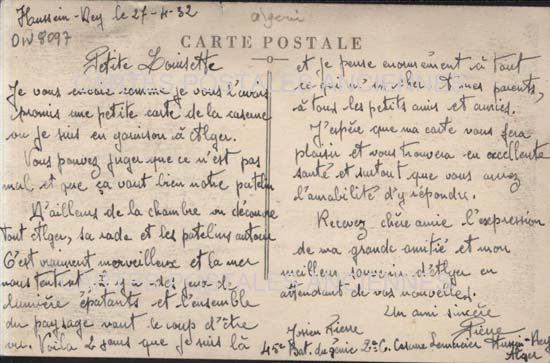 Hussein-Dey le 27-4-32
algerie
OW8097
CARTE POSTALE
Petite Louisette
Je vous envoie comme je vous l'avais
promis une petite carte de la caserne
ou je suis en garnison à Alger.
Vous pouvez juger que ce n'est pas
mal et que ça vaut bien notre patelin
D'ailleurs de la chambre on découvre
tout Alger, sa rade et les patelins autour
C'est vraiment merveilleux et la mer
nous tentent il y a des jeux de
lumière épatants et l'ensemble
du paysage vaut le coup d'être
vu. Voila 2 jours que je suis là
et je pense enormement à tout
ce qui m'est cher à mes parents,
à tous les petits amis et amies.
J'espère que ma carte vous fera
plaisir et vous trouvera en excellente
santé et surtout que vous aurez
l'amabilité d'y répondre.
Recevez chère amie l'expression
de ma grande amitié et mon
meilleur souvenir d'Alger en
attendant de vos nouvelles.
Un ami sincère
Pierre
Pierre
45e Bat. du génie 2e C. Caserne Lemercier Hussein-Dey
Alger